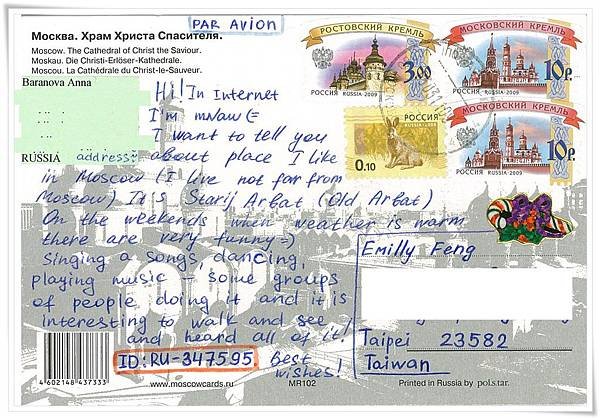 PAR AVION
Москва. Храм Христа Спасителя.
Moscow. The Cathedral of Christ the Saviour.
Moskau. Die Christi-Erlöser-Kathedrale.
Moscou. La Cathédrale du Christ-le-Sauveur.
Baranova Anna
RUSSIA address:
Hi! In Internet
I'm mNaw (=
I want to tell you
about place I like
in Moscow (I live not far from
Moscow) It's Starij Arbat (Old Arbat)
On the weekends when weather is warm
there are very funny =)
Singing a songs, dancing,
playing music – some groups
of people doing it and it is
interesting to walk and see
and heard all of it!
ID: RU-347595
Best
wishes!
РОСТОВСКИЙ КРЕМЛЬ
3.00
РОССИЯ RUSSIA·2009
МОСКОВСКИЙ КРЕМЛЬ
10р.
РОССИЯ RUSSIA·2009
РОССИЯ
0.10
МОСКОВСКИЙ КРЕМЛЬ
10р.
РОССИЯ RUSSIA·2009
Emilly Feng
Taipei 23582
Taiwan
4 602148 437333
www.moscowcards.ru
MR102
Printed in Russia by pol.s.tar.